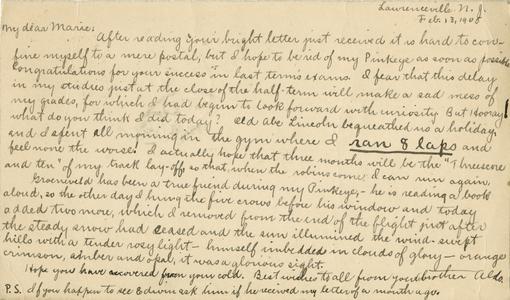 Lawrenceville N. J.
Feb. 13, 1908
My dear Marie:
After reading your bright letter just received it is hard to con-
fine myself to a mere postal, but I hope to be rid of my Pinkeye as soon as possible
Congratulations for your success in last term's exams. I fear that this delay
in my studies just at the close of the half-term will make a sad mess of
my grades, for which I had begun to look forward with curiosity. But Hooray!
what do you think I did today? Old Abe Lincoln bequeathed us a holiday
and I spent all morning in the gym where I ran 8 laps and
feel none the worse! I actually hope that three months will be the "Threescore
and ten" of my track lay-off so that, when the robins come I can run again.
Groenveld has been a true friend during my Pinkeye, - he is reading a book
aloud, so the other day I hung the five crows before his window and today
added two more, which I removed from the end of the flight just after
the steady snow had ceased and the sun illumined the wind-swept
hills with a tender rosy light - himself imbedded in clouds of glory - orange
crimson, amber and opal, it was a glorious sight.
Hope you have recovered from your cold. Best wishes to all from your brother Aldo.
P.S. If you happen to see Edwin ask him if he received my letter of a month ago.